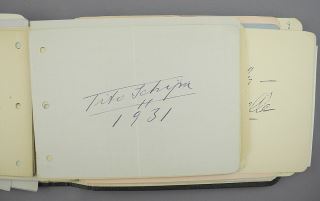 Tito Schipa
1931